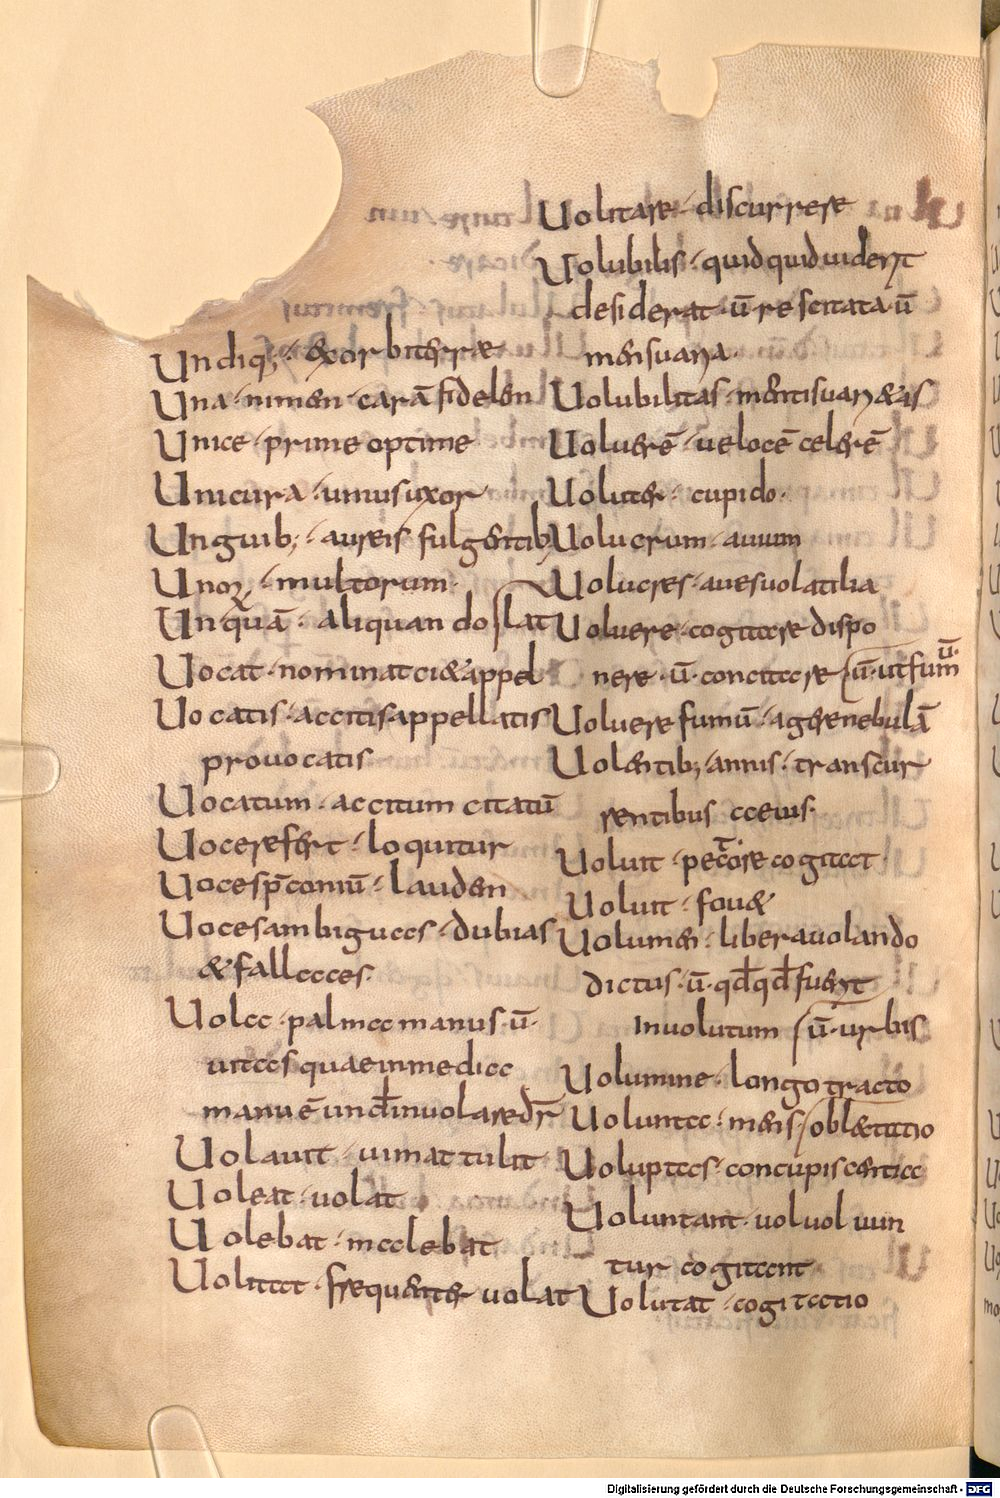 Undiq; · exorbiterrae
Una · nimen · carā fidelen
Unice · prime optime
Unicura · unius uxor
Unguib; · aureis fulgentib;
Unoꝝ · multorum ·
Unquā · aliquando
Uocat · nominat ci& appel
lat
Uocatis · accitis · appellatis
prouocatis
Uocatum · accitum citatū
Uocerefert · loquitur
Uoces p̄coniū · lauden
Uoces ambiguas · dubias
& fallaces ·
Uola · palma manus · ū ·
uitas quae in media
manu ē und inuolare dr̄
Uolauit · uimat tulit
Uoleat · uolat
Uolebat · malebat
Uolitat · frequenter uolat
Uolitare · discurrere
Uolubilis · quidquid uident
desiderat · ū · re scitata · ū
mensuara ·
Uolubilitas · mentisuar&is
Uoluerē · uelocē celerē
Uoluter · cupido ·
Uolucrum · auium
Uolucres · aues uolatilia
Uoluere · cogitare dispo
nere · ū · concitare
ū · ut fum ū ·
Uoluere fumū · agere nebulā
Uolentib; annis · transcur
rentibus aeuis ·
Uoluit · pectore cogitat ·
Uoluit · fouet
Uolumen · liber a uolando
dictus · ū · qd qd fuerit
inuolutum
ū · urbis
Uolumine · longo tracto
Uolunta · mens
oblectatio
Uoluptas · concupiscentia
Uoluntant · uoluoluun
tur cogitant
Uolutat · cogitatio
Digitalisierung gefördert durch die Deutsche Forschungsgemeinschaft - DFG